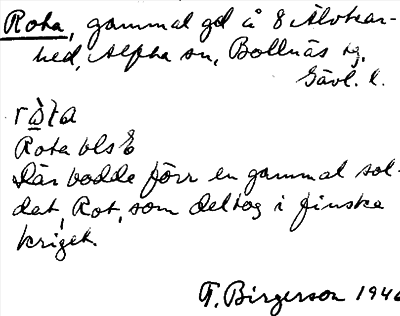 Rota, gammal gd å 8 Älvkar-
hed, Alpha sn, Bollnäs tg.
Gävl. l.
ròta
Rota bls E
Där bodde förr en gammal sol-
dat, Rot, som deltog i finska
kriget.
T. Birgerson 1946